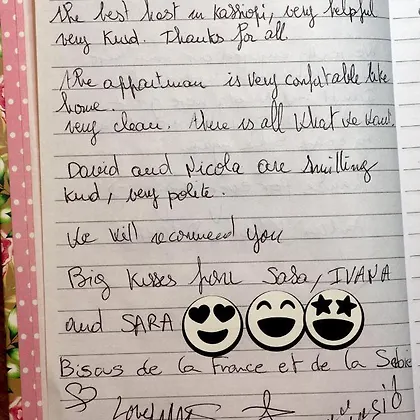 the best host in Kassiopi, very helpful
very kind. Thanks for all.
the appartman is very confortable like
home.
very clean. there is all what we want.
David and Nicola are smilling
kind, very polite.
We will recommend you
Big kisses from Sasa, IVANA
and SARA
Bisous de la France et de la Serbie